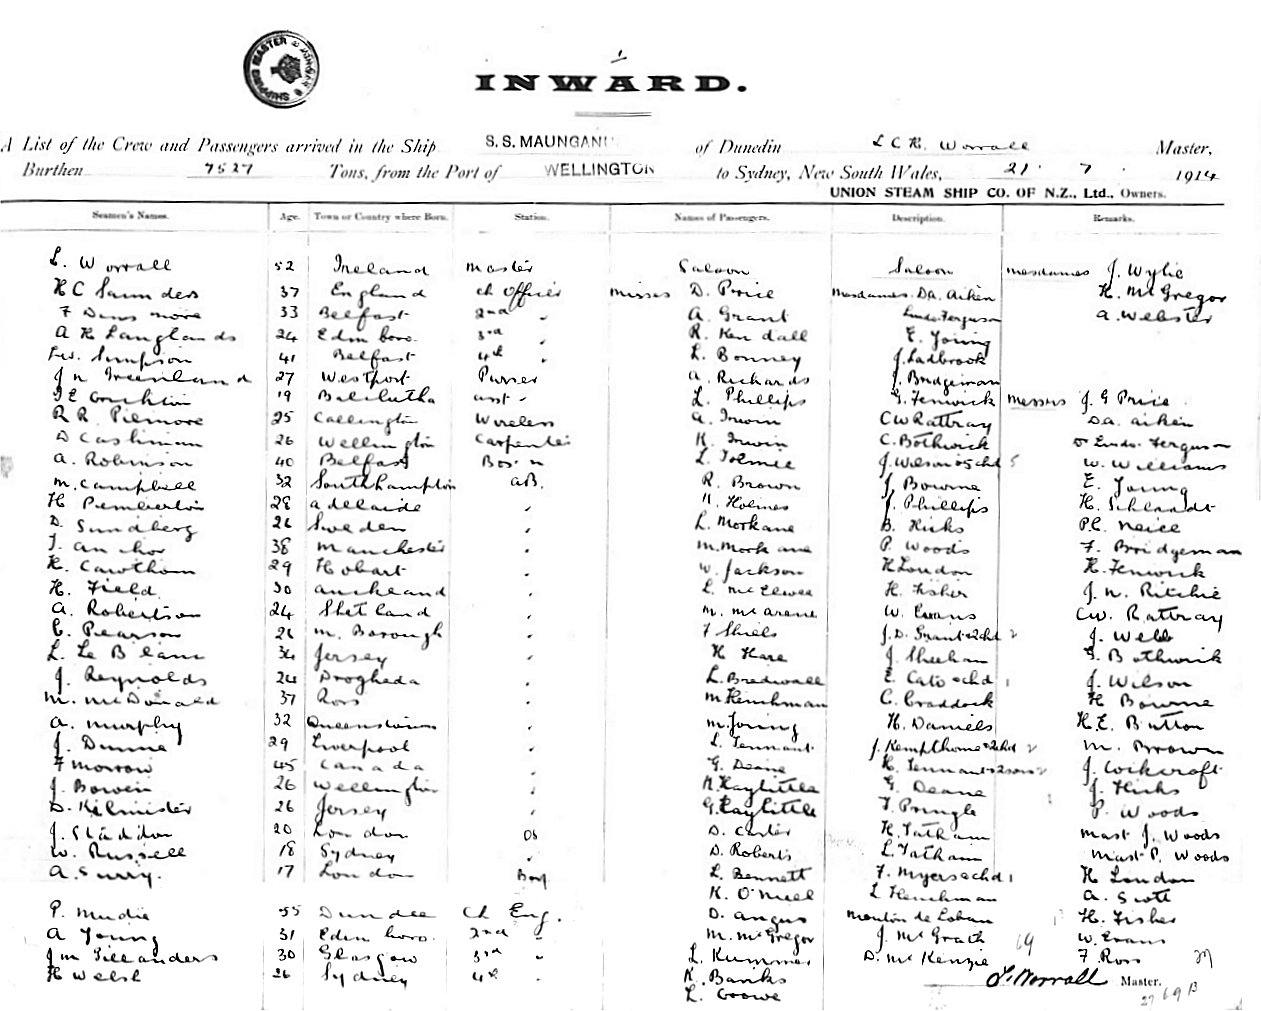 SHIPPING MASTER SYDNEY
INWARD.
A List of the Crew and Passengers arrived in the Ship S.S. MAUNGANU of Dunedin L C H Worrall Master,
Burthen 7527 Tons, from the Port of WELLINGTON to Sydney, New South Wales, 21 . 7 . 1914
UNION STEAM SHIP CO. OF N.Z., Ltd., Owners.
Seamen's Names. Age. Town or Country where Born. Station. Names of Passengers. Description. Remarks.
L. Worrall 52 Ireland Master Saloon Saloon mesdames J. Wylie
H C Saunders 37 England Ch Officer misses D. Price mesdames. Da. Aitken H. McGregor
F Dinsmore 33 Belfast 2nd " A. Grant Linds Ferguson A. Webster
A H Langlands 24 Edinboro. 3rd " R. Kendall E. Young
Simpson 41 Belfast 4th " L. Bonney J. Ladbrook
J N Greenland 27 Westport Purser A. Richards J. Bridgeman
19 Balclutha asst " L. Phillips G. Fenwick messrs J. G Price
R R. Pilmore 25 Callington Wireless A. Irwin C W Rattray Da. Aitken
D Cashman 26 Wellington Carpenter K. Irwin C. Bothwick Linds. Ferguson
A. Robinson 40 Belfast Bos'n L. Tolmie J. Wilson & 5 chd 5 W. Williams
M. Campbell 32 Southampton AB. R. Brown J. Bourne E. Young
H Pemberton 28 Adelaide " N. Holmes J. Phillips H. Schlaadt
D. Sundberg 26 Sweden " L. Morkane B. Hicks P.C. Neill
T. Anchor 38 Manchester " M. Morkane P. Woods F. Bridgeman
H. Cawthorn 29 Hobart " W. Jackson H London H. Fenwick
H. Field 30 Auckland " L. McElwee H. Fisher J. N. Ritchie
A. Robertson 24 Shetland " M. McArene W. Evans C W. Rattray
C. Pearson 26 M. Borough " F Shiels J. D. Grant & 2 chd 2 J. Webb
L. Le Blanc 34 Jersey " H Hare J. Sheehan G. Bothwick
J. Reynolds 24 Drogheda " L. Bredwall E. Cato & chd 1 J. Wilson
M. McDonald 37 Ross " M Henchman C. Craddock H Bourne
A. Murphy 32 Queenstown " M. Young H. Daniels H. E. Button
J. Dunne 29 Liverpool " L. Tennant J. Kempthorne & 2 chd 2 M. Brown
F Morrow 45 Canada " G. Deane H. Tennant & 2 sons 2 J. Wicksroft
J. Bowen 26 Wellington " N Haylittle G. Deane J. Hicks
D. Kilminster 26 Jersey " G. Haylittle F. Pringle P. Woods
J. Sladdon 20 London OS D. Carter H. Tatham mast J. Woods
W. Russell 18 Sydney " D. Roberts L. Tatham mast P. Woods
A. Surry. 17 London Boy L. Bennett F. Myers & chd 1 H London
K. O'Neill L Henchman A. Scott
P. Mudie 55 Dundee Ch Eng. D. Angus Mouton de Loban H. Fisher
A Young 31 Edinboro. 2nd " M. McGregor J. McGrath 69 W. Evans
J M Gillanders 30 Glasgow 3rd " L. Kummer D. McKenzie F Ross 27
H Welsh 26 Sydney 4th " K. Banks L. Worrall Master.
L. Crowe 27 69 B